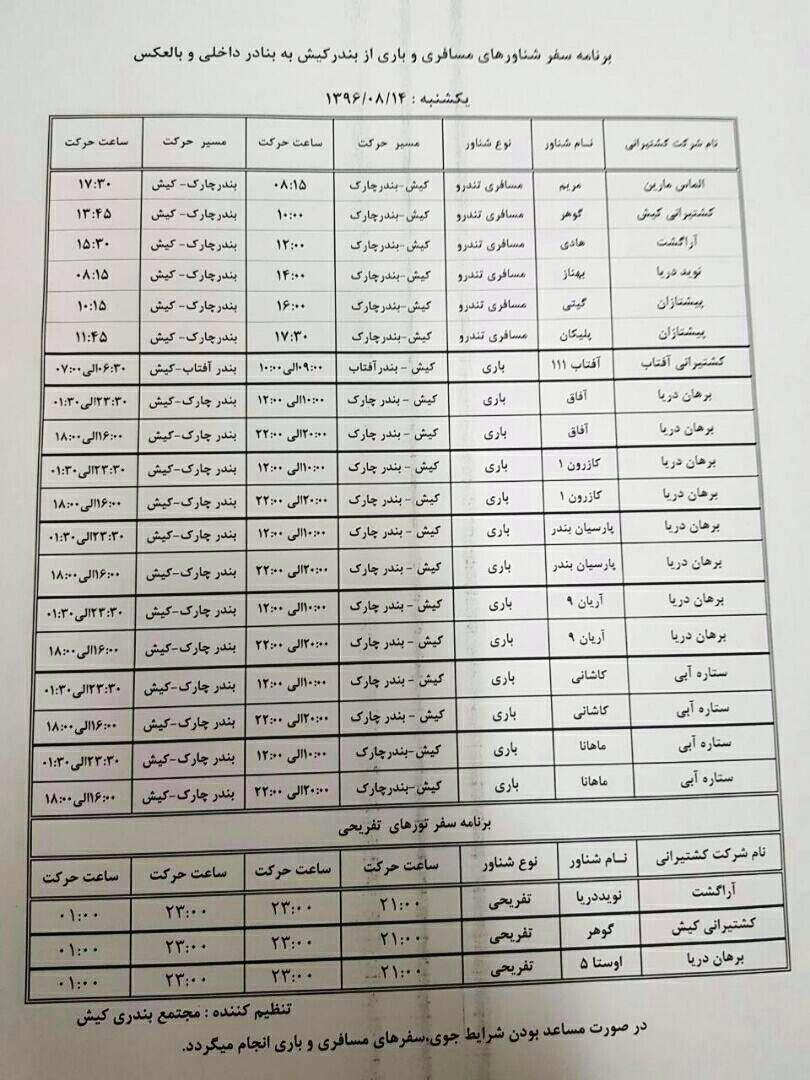 برنامه سفر شناورهای مسافری و باری از بندرکیش به بنادر داخلی و بالعکس
یکشنبه : ۱۳۹۶/۰۸/۱۴
نام شرکت کشتیرانی نـام شناور نوع شناور مسیر حرکت ساعت حرکت مسیر حرکت ساعت حرکت
الماس مارین مریم مسافری تندرو کیش-بندرچارک ۰۸:۱۵ بندرچارک- کیش ۱۷:۳۰
کشتیرانی کیش گوهر مسافری تندرو کیش-بندرچارک ۱۰:۰۰ بندرچارک- کیش ۱۳:۴۵
آراگشت هادی مسافری تندرو کیش-بندرچارک ۱۲:۰۰ بندرچارک- کیش ۱۵:۳۰
نوید دریا بهناز مسافری تندرو کیش-بندرچارک ۱۴:۰۰ بندرچارک- کیش ۰۸:۱۵
پیشتازان گیتی مسافری تندرو کیش-بندرچارک ۱۶:۰۰ بندرچارک- کیش ۱۰:۱۵
پیشتازان پلیکان مسافری تندرو کیش-بندرچارک ۱۷:۳۰ بندرچارک- کیش ۱۱:۴۵
کشتیرانی آفتاب آفتاب ۱۱۱ باری کیش - بندرآفتاب ۰۹:۰۰الی۱۰:۰۰ بندر آفتاب-کیش ۰۶:۳۰الی۰۷:۰۰
برهان دریا آفاق باری کیش - بندر چارک ۱۰:۰۰الی ۱۲:۰۰ بندر چارک-کیش ۲۳:۳۰الی۰۱:۳۰
برهان دریا آفاق باری کیش - بندر چارک ۲۰:۰۰الی ۲۲:۰۰ بندر چارک-کیش ۱۶:۰۰الی۱۸:۰۰
برهان دریا کازرون ۱ باری کیش - بندر چارک ۱۰:۰۰الی ۱۲:۰۰ بندر چارک-کیش ۲۳:۳۰الی۰۱:۳۰
برهان دریا کازرون ۱ باری کیش - بندر چارک ۲۰:۰۰الی ۲۲:۰۰ بندر چارک-کیش ۱۶:۰۰الی۱۸:۰۰
برهان دریا پارسیان بندر باری کیش - بندر چارک ۱۰:۰۰الی ۱۲:۰۰ بندر چارک-کیش ۲۳:۳۰الی۰۱:۳۰
برهان دریا پارسیان بندر باری کیش - بندر چارک ۲۰:۰۰الی ۲۲:۰۰ بندر چارک-کیش ۱۶:۰۰الی۱۸:۰۰
برهان دریا آریان ۹ باری کیش - بندر چارک ۱۰:۰۰الی ۱۲:۰۰ بندر چارک-کیش ۲۳:۳۰الی۰۱:۳۰
برهان دریا آریان ۹ باری کیش - بندر چارک ۲۰:۰۰الی ۲۲:۰۰ بندر چارک-کیش ۱۶:۰۰الی۱۸:۰۰
ستاره آبی کاشانی باری کیش - بندر چارک ۱۰:۰۰الی ۱۲:۰۰ بندر چارک-کیش ۲۳:۳۰الی۰۱:۳۰
ستاره آبی کاشانی باری کیش - بندر چارک ۲۰:۰۰الی ۲۲:۰۰ بندر چارک-کیش ۱۶:۰۰الی۱۸:۰۰
ستاره آبی ماهانا باری کیش-بندرچارک ۱۰:۰۰الی ۱۲:۰۰ بندر چارک-کیش ۲۳:۳۰الی۰۱:۳۰
ستاره آبی ماهانا باری کیش-بندرچارک ۲۰:۰۰الی ۲۲:۰۰ بندر چارک-کیش ۱۶:۰۰الی۱۸:۰۰
برنامه سفر تورهای تفریحی
نام شرکت کشتیرانی نـام شناور نوع شناور ساعت حرکت ساعت حرکت ساعت حرکت ساعت حرکت
آراگشت نویددریا تفریحی ۲۱:۰۰ ۲۳:۰۰ ۲۳:۰۰ ۰۱:۰۰
کشتیرانی کیش گوهر تفریحی ۲۱:۰۰ ۲۳:۰۰ ۲۳:۰۰ ۰۱:۰۰
برهان دریا اوستا ۵ تفریحی ۲۱:۰۰ ۲۳:۰۰ ۲۳:۰۰ ۰۱:۰۰
تنظیم کننده : مجتمع بندری کیش
در صورت مساعد بودن شرایط جوی،سفرهای مسافری و باری انجام میگردد.